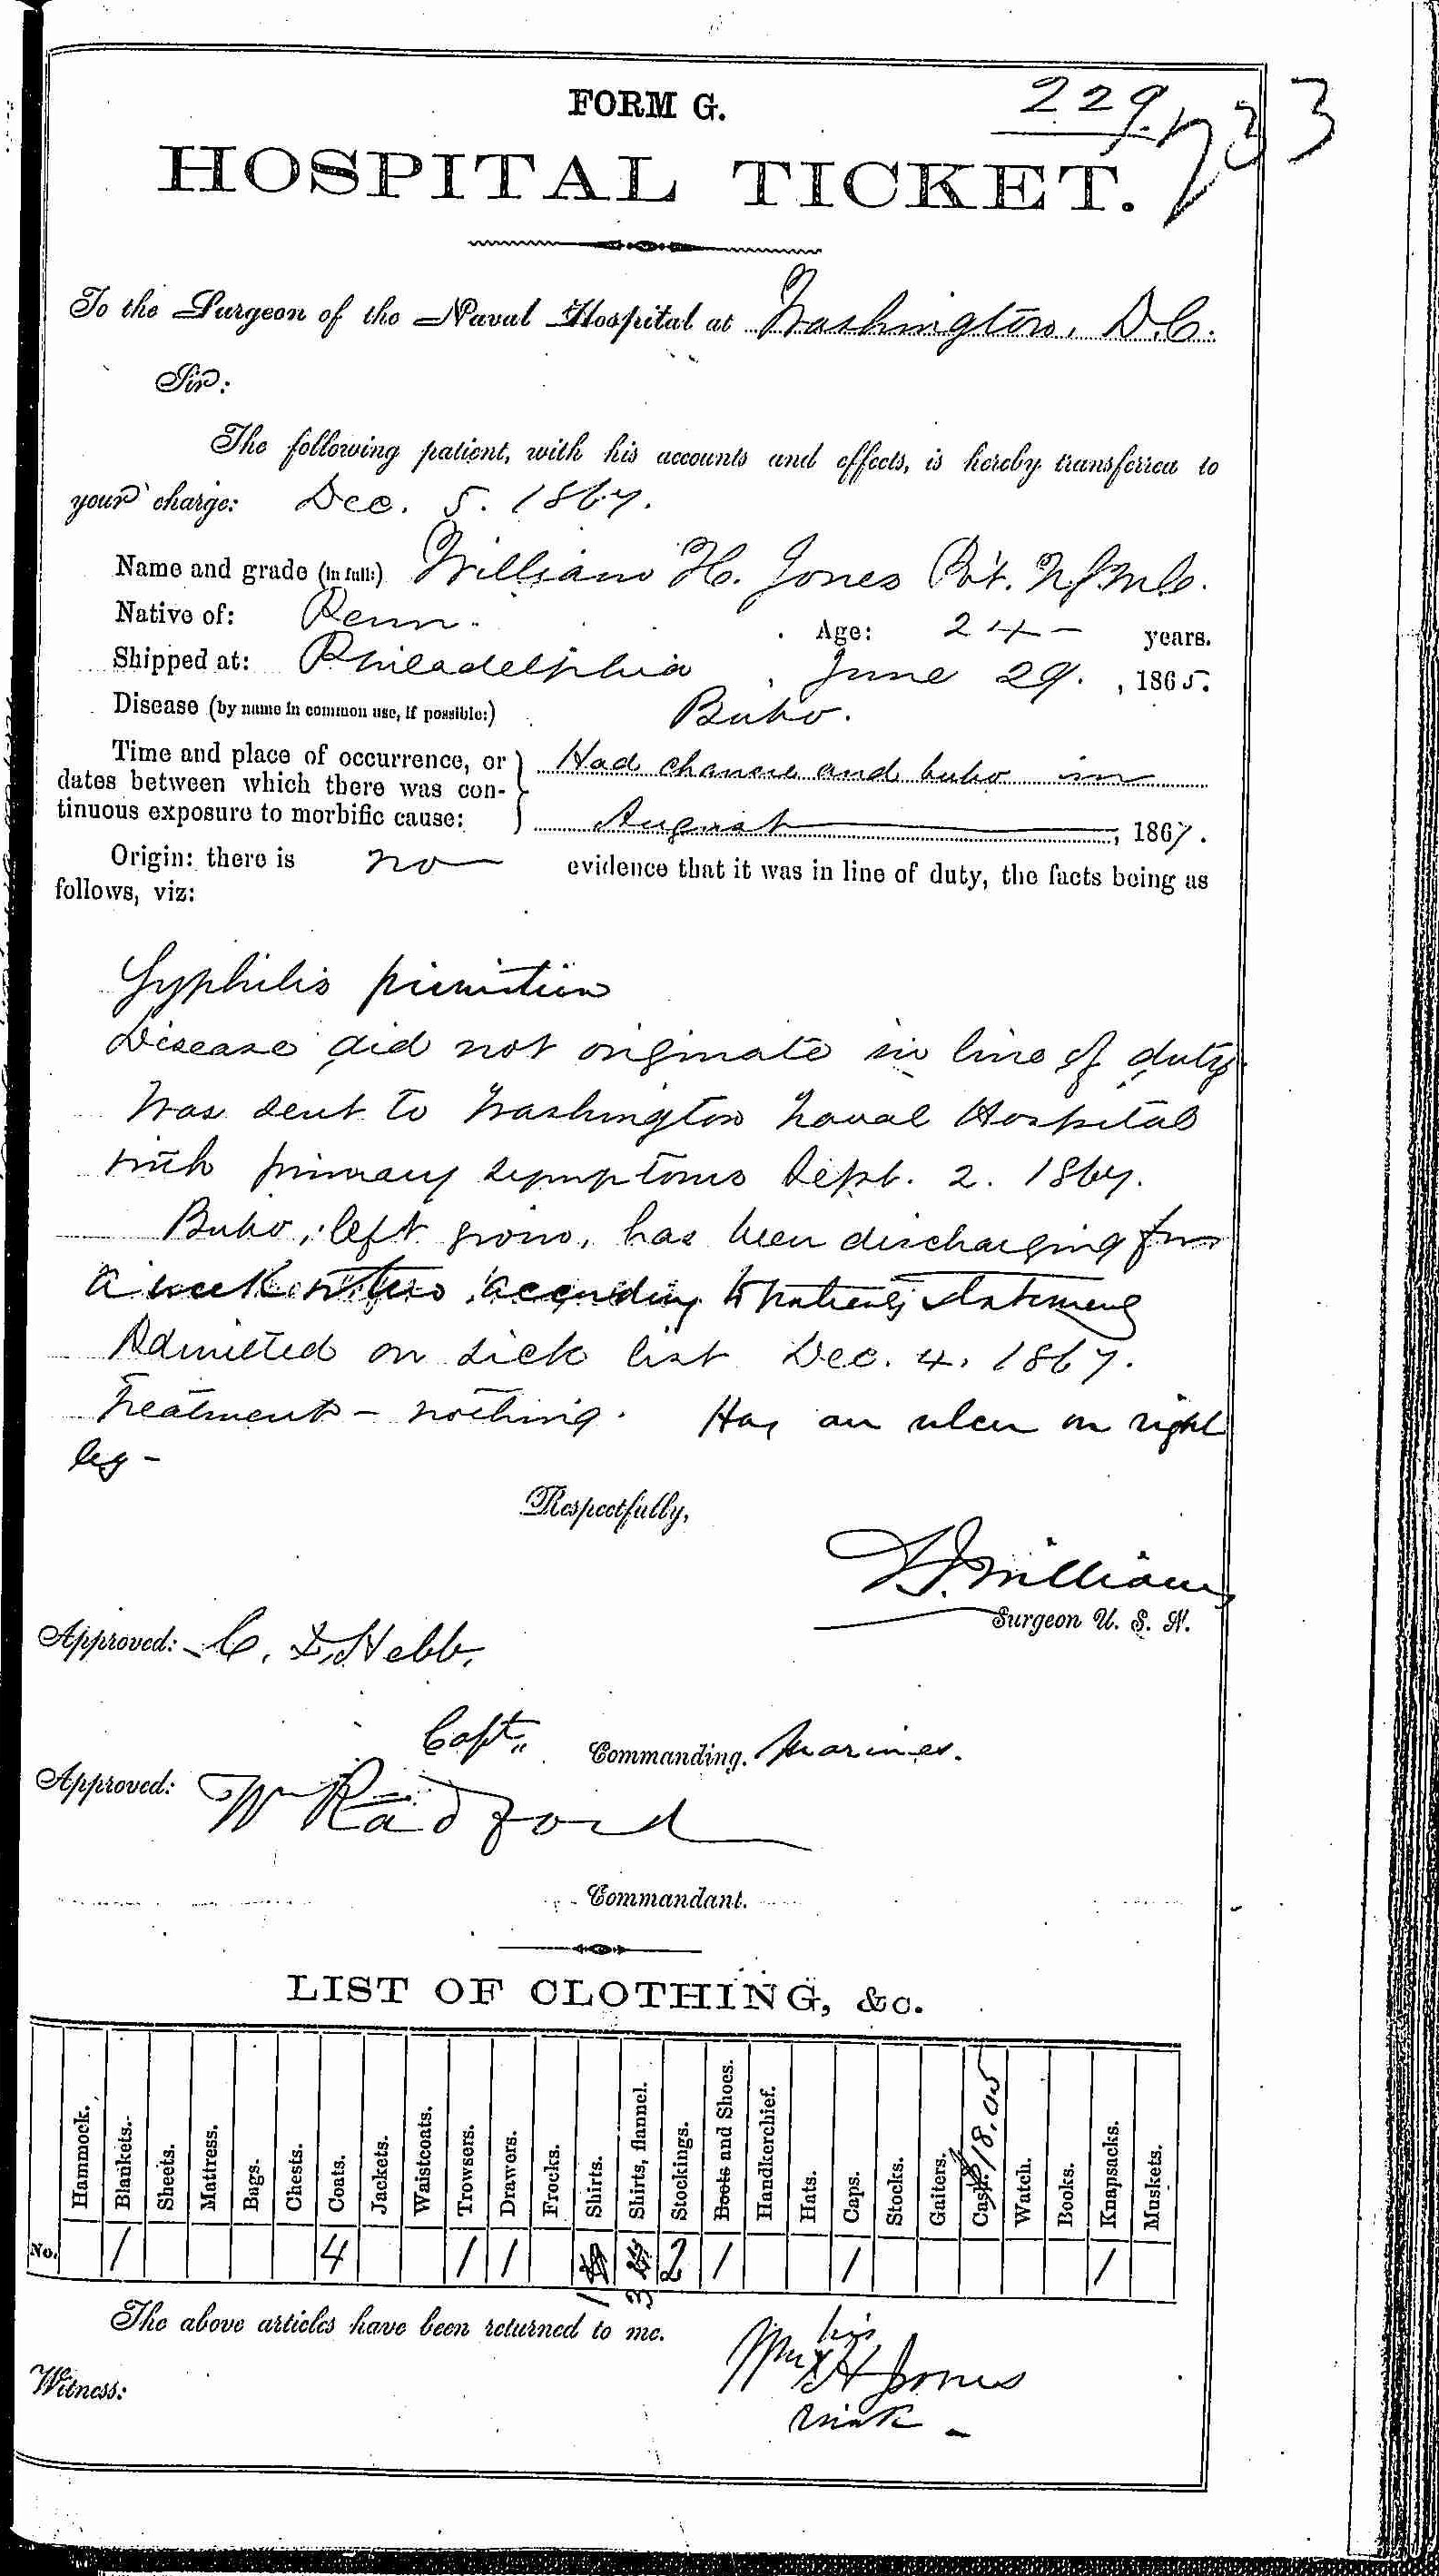 FORM G.
229.
733
HOSPITAL TICKET.
To the Surgeon of the Naval Hospital at Washington, D.C.
Sir:
The following patient, with his accounts and effects, is hereby transferred to
your charge: Dec. 5. 1867.
Name and grade (in full:) William H. Jones Pvt. U.S.M.C.
Native of: Penn. Age: 24 – years.
Shipped at: Philadelphia, June 29. , 1865.
Disease (by name in common use, if possible:) Bubo.
Time and place of occurrence, or Had chancre and bubo in
dates between which there was con-
tinuous exposure to morbific cause: August , 1867.
Origin: there is no evidence that it was in line of duty, the facts being as
follows, viz:
Syphilis primitiva
Disease did not originate in line of duty.
Was sent to Washington Naval Hospital
with primary symptoms Sept. 2. 1867.
Bubo, left groin, has been discharging for
a week or two according to patient's statement
Admitted on sick list Dec. 4. 1867.
Treatment – nothing. Has an ulcer on right
leg –
Respectfully,
Williams
Surgeon U. S. N.
Approved: C. D. Hebb,
Capt. Commanding. Marines.
Approved: Wm Radford
Commandant.
LIST OF CLOTHING, &c.
Hammock. Blankets. Sheets. Mattress. Bags. Chests. Coats. Jackets. Waistcoats. Trowsers. Drawers. Frocks. Shirts. Shirts, flannel. Stockings. Boots and Shoes. Handkerchief. Hats. Caps. Stocks. Gaiters. Cash. $18.05 Watch. Books. Knapsacks. Muskets.
No. 1 4 1 1 2 1 1 1
1 3
The above articles have been returned to me.
his
Wm x H Jones
mark –
Witness: